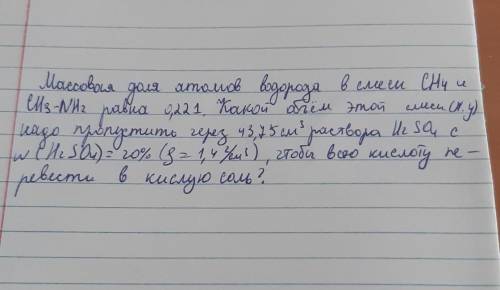 Массовая доля атомов водорода в смеси CH4 и
CH3-NH2 равна 0,221. Какой объём этой смеси (н.у)
надо пропустить через 43,75 см³ раствора H2SO4 с
w(H2SO4)=20% (ρ=1,4 г/см³), чтобы всю кислоту пе-
ревести в кислую соль?